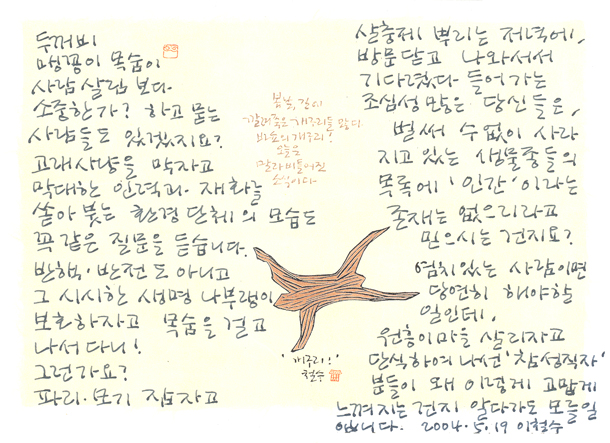 두꺼비
맹꽁이 목숨이
사람 살림 보다
소중한가? 하고 묻는
사람들도 있겠지요?
고래사냥을 막자고
막대한 인력과 재화를
쏟아 붓는 환경 단체의 모습도
꼭 같은 질문을 듣습니다.
반핵·반전도 아니고
그 시시한 생명 나부랭이
보호하자고 목숨을 걸고
나서다니!
그런가요?
파리·모기 잡자고
살충제 뿌리는 저녁에,
방문 닫고 나와서서
기다렸다 들어가는
조심성 많은 당신들은,
벌써 수없이 사라
지고 있는 생물종들의
목록에 '인간'이라는
존재는 없으리라고
믿으시는 건지요?
염치있는 사람이면
당연히 해야할
일인데,
원흥이마을 살리자고
단식하여 나선 '참성직자'
분들이 왜 이렇게 고맙게
느껴지는 건지 알다가도 모를일
입니다. 2004.5.19 이철수
봄날, 길에
깔려죽은 개구리들 많다
오늘은
말라비틀어진
손님이다
'개구리!'
철수